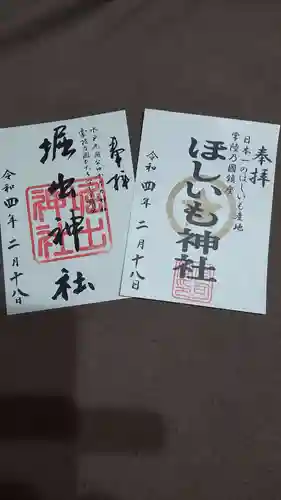 奉拝
堀出神社
令和四年二月十八日
奉拝
日本一のほしいも産地
常陸乃國鎮座
ほしいも神社
令和四年二月十八日